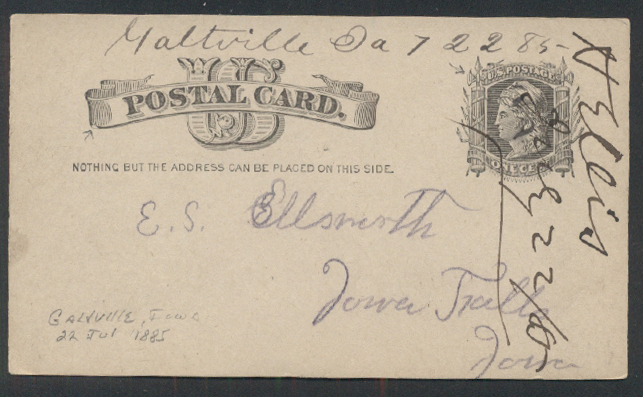 Galtville Ia 7 22 85
U.S. POSTAGE
US
POSTAL CARD.
ONE CENT
NOTHING BUT THE ADDRESS CAN BE PLACED ON THIS SIDE.
H Ellis
E. S. Ellsworth
Iowa Falls
Iowa
GALTVILLE, IOWA
22 Jul 1885